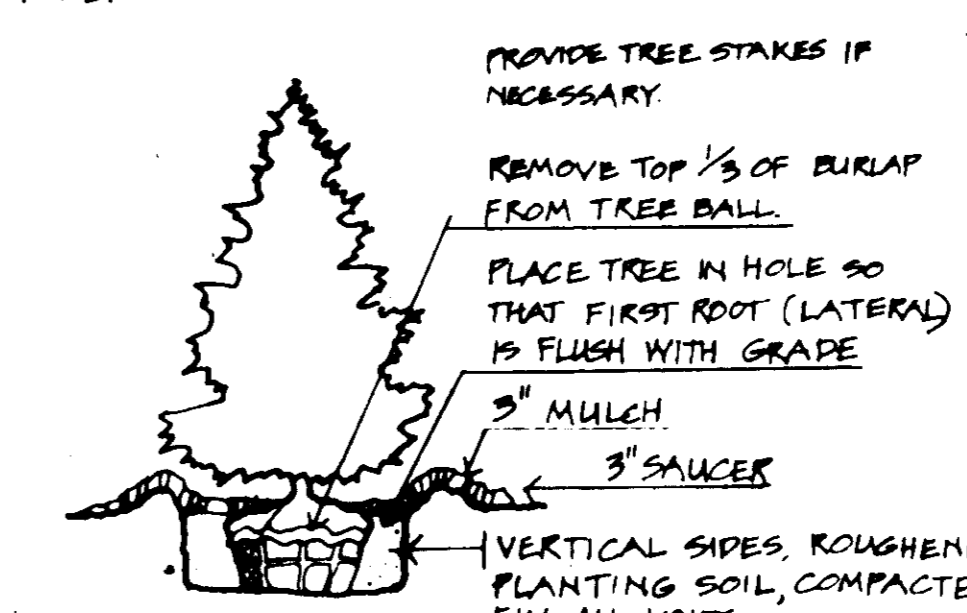 PROVIDE TREE STAKES IF
NECESSARY.
REMOVE TOP 1/3 OF BURLAP
FROM TREE BALL.
PLACE TREE IN HOLE SO
THAT FIRST ROOT (LATERAL)
IS FLUSH WITH GRADE
3" MULCH
3" SAUCER
VERTICAL SIDES, ROUGHEN
PLANTING SOIL, COMPACTE